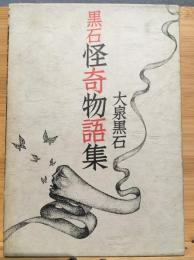 黒石
怪奇物語集
大泉黒石